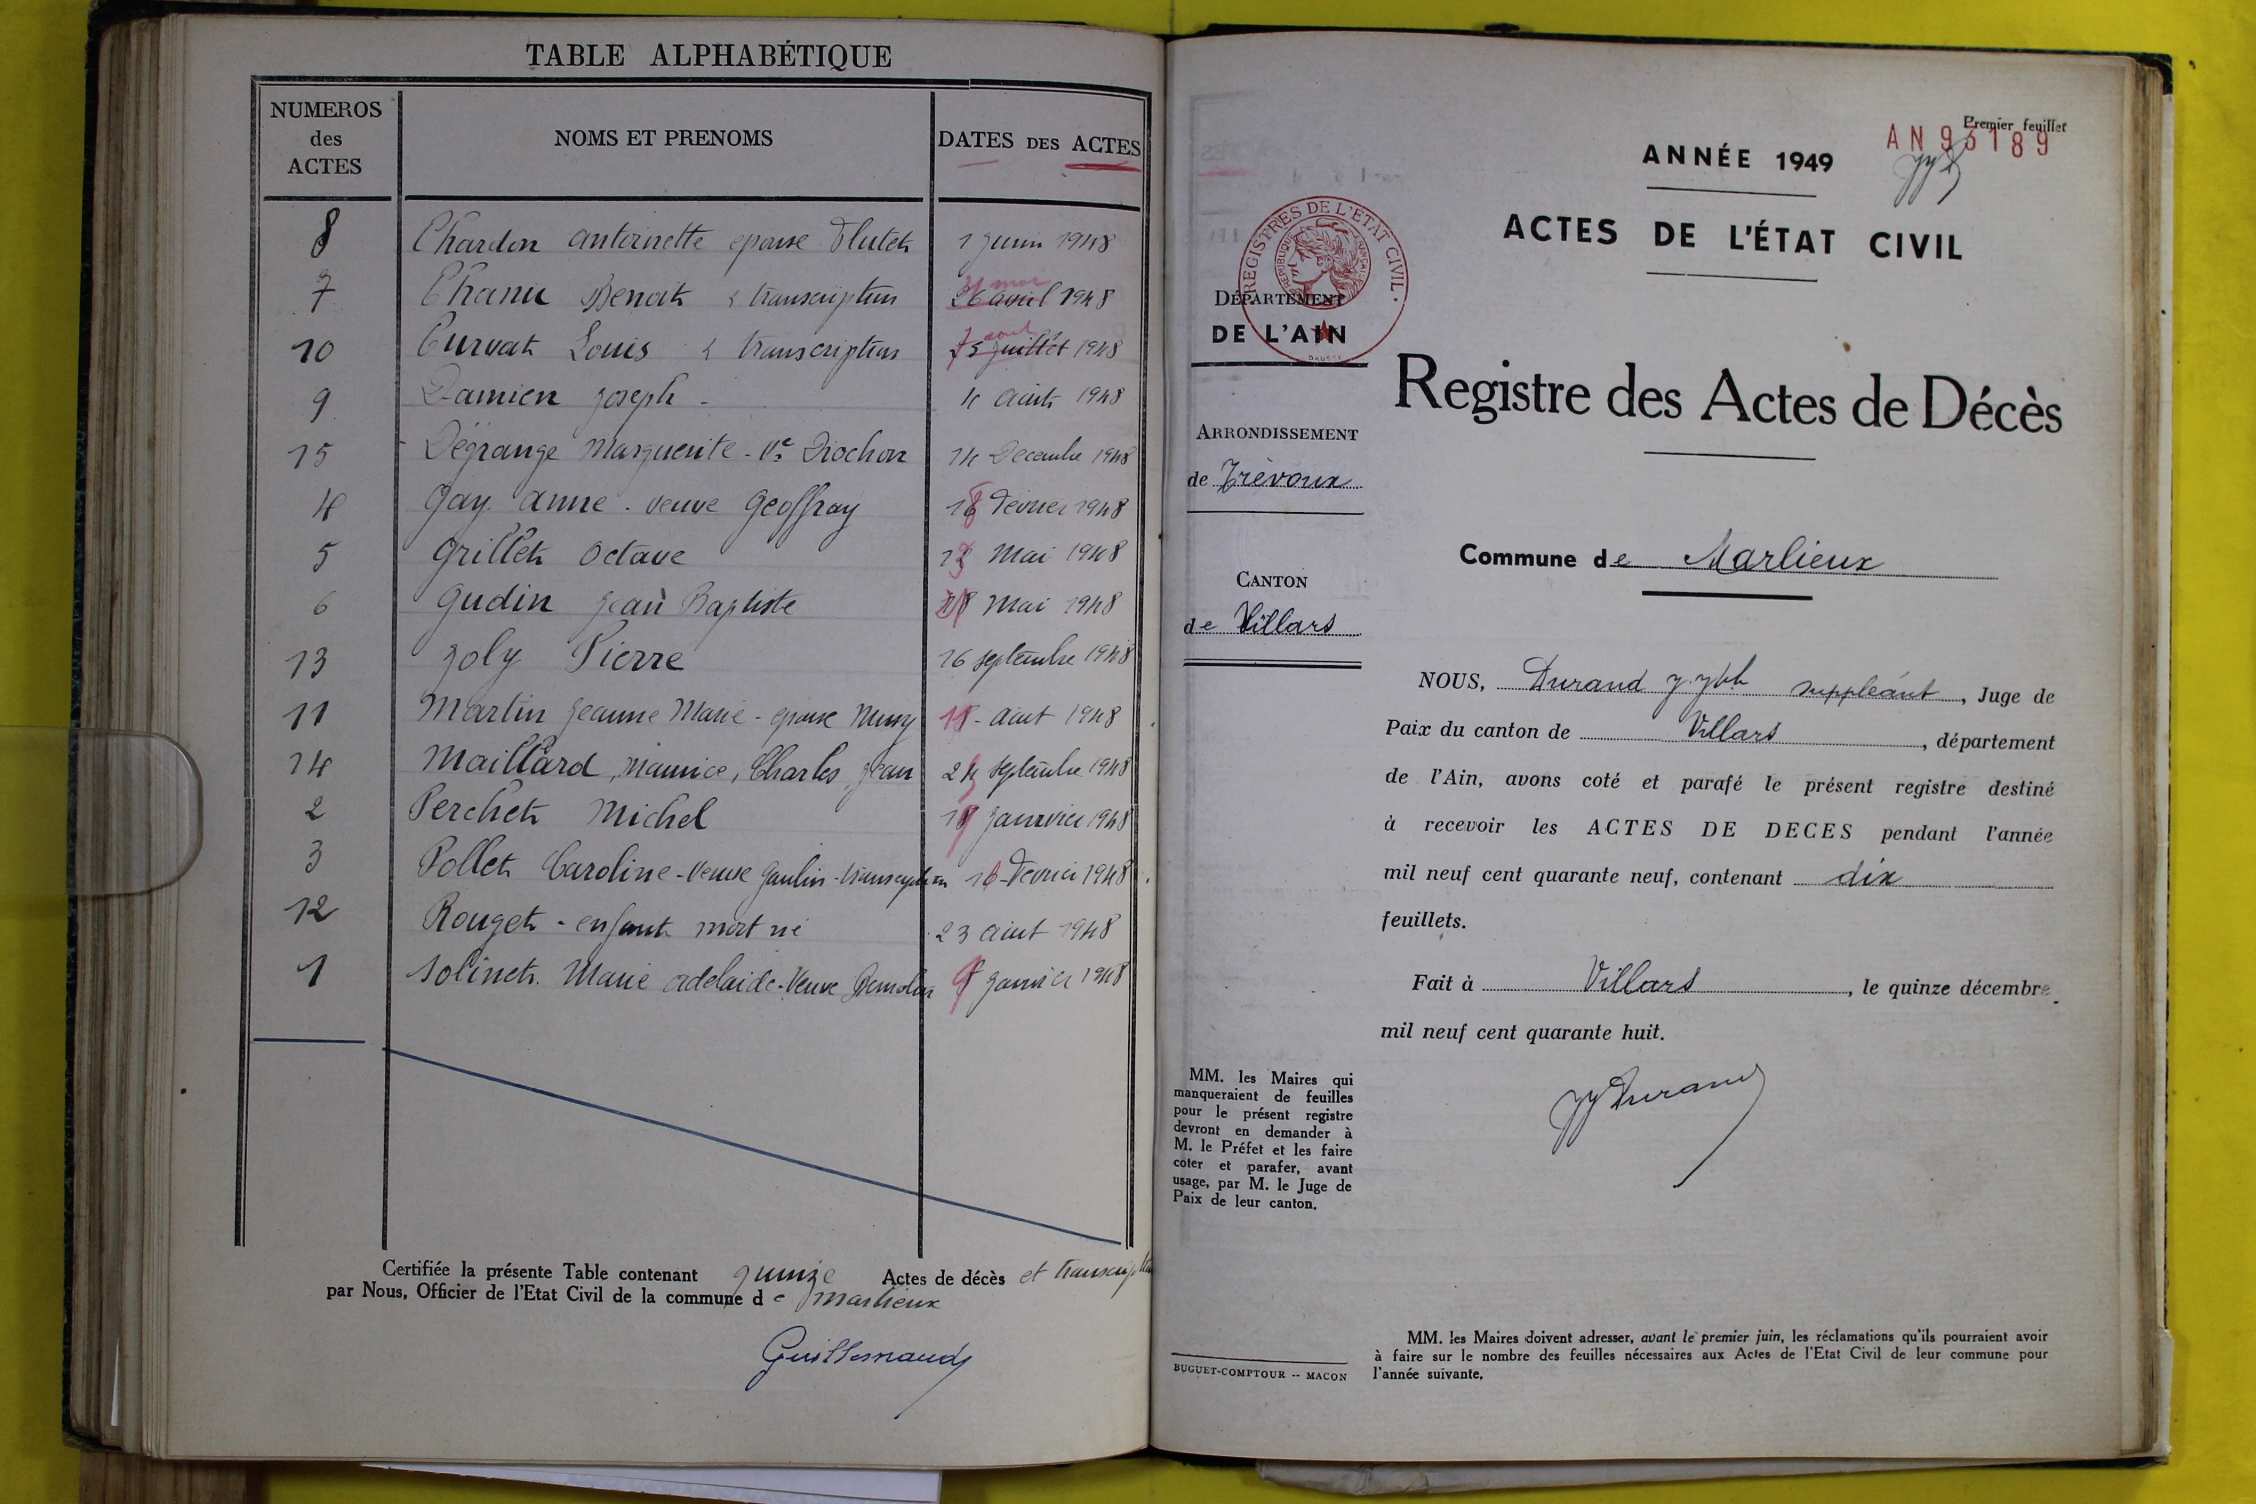 TABLE ALPHABÉTIQUE
NUMEROS des ACTES
NOMS ET PRENOMS
DATES DES ACTES
8 Chardon Antoinette epouse Flutet 1 Juin 1948
7 Chanu Benoit transcription 26 avril 1948
10 Curvat Louis transcription juillet 1948
9 Damien Joseph - 4 Août 1948
15 Dégrange Marguerite - Ve Diochon 14 Decembre 1948
4 Gay Anne - veuve Geoffray Février 1948
5 Grillet Octave Mai 1948
6 Gudin Jean Baptiste Mai 1948
13 Joly Pierre 16 septembre 1948
11 Martin Jeanne Marie - epouse Août 1948
14 Maillard, Maurice, Charles, Jean septembre 1948
2 Perchet Michel Janvier 1948
3 Pollet Caroline - Veuve Gaulin - transcription Fevrier 1948
12 Rouget - enfant mort né 23 Août 1948
1 Solinet Marie Adelaide - Veuve Janvier 1948
Certifiée la présente Table contenant quinze Actes de décès et transcription
par Nous, Officier de l'Etat Civil de la commune de Marlieux
Guillemaud
Premier feuillet
AN 93189
ANNÉE 1949
ACTES DE L'ÉTAT CIVIL
REGISTRES DE L'ETAT CIVIL
REPUBLIQUE FRANÇAISE
DÉPARTEMENT
DE L'AIN
Registre des Actes de Décès
ARRONDISSEMENT
de Trévoux
Commune de Marlieux
CANTON
de Villars
NOUS, Durand suppléant, Juge de
Paix du canton de Villars, département
de l'Ain, avons coté et parafé le présent registre destiné
à recevoir les ACTES DE DECES pendant l'année
mil neuf cent quarante neuf, contenant dix
feuillets.
Fait à Villars, le quinze décembre
mil neuf cent quarante huit.
JJ Durand
MM. les Maires qui
manqueraient de feuilles
pour le présent registre
devront en demander à
M. le Préfet et les faire
coter et parafer, avant
usage, par M. le Juge de
Paix de leur canton.
BUGUET-COMPTOUR -- MACON
MM. les Maires doivent adresser, avant le premier juin, les réclamations qu'ils pourraient avoir
à faire sur le nombre des feuilles nécessaires aux Actes de l'Etat Civil de leur commune pour
l'année suivante.